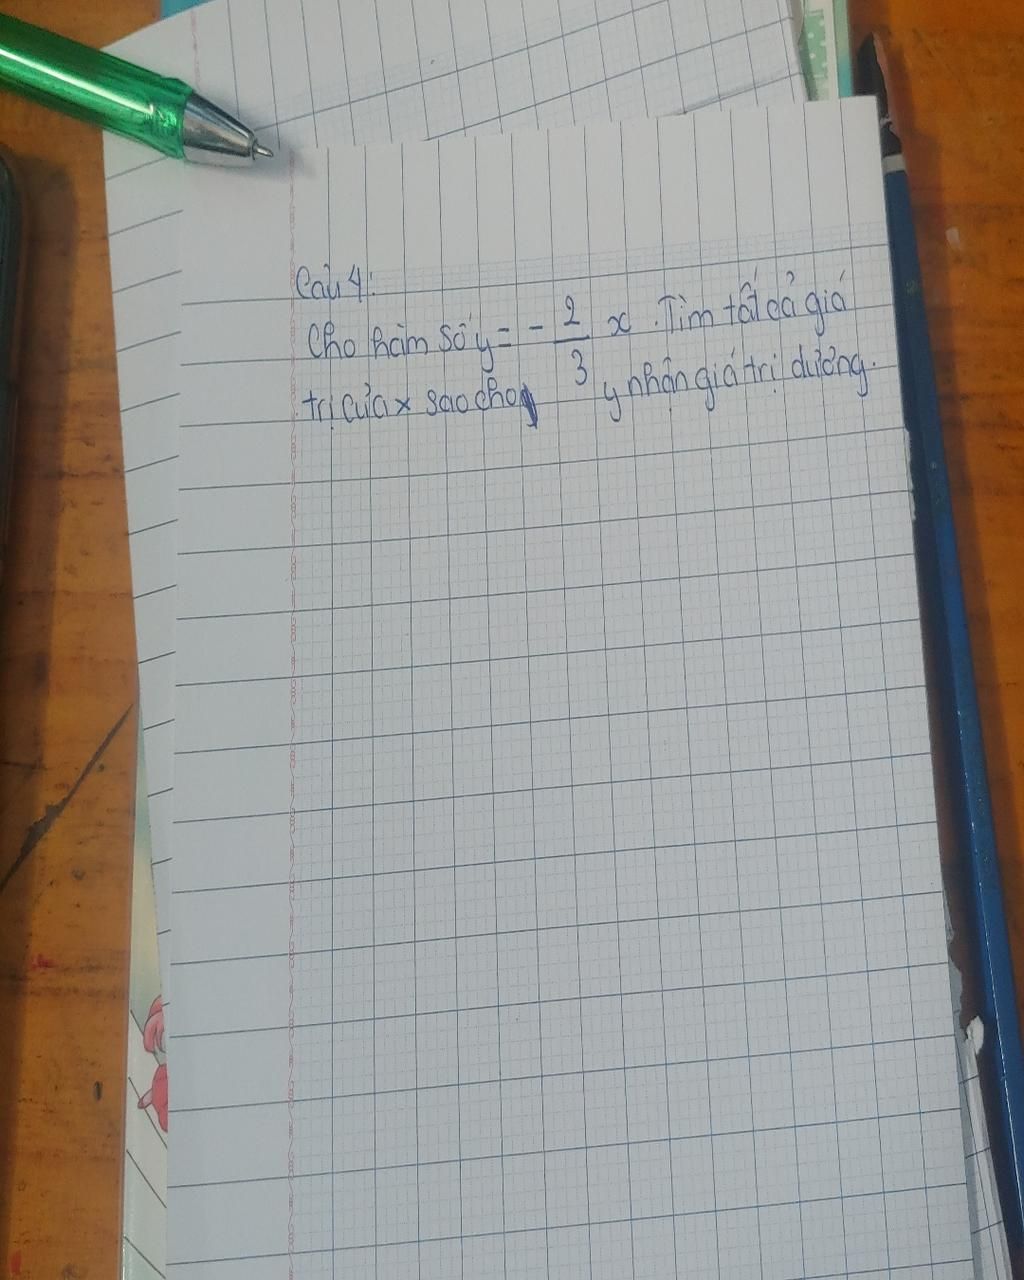 Câu 4:
Cho hàm số y = - 2/3 x. Tìm tất cả giá
trị của x sao cho y nhận giá trị dương.